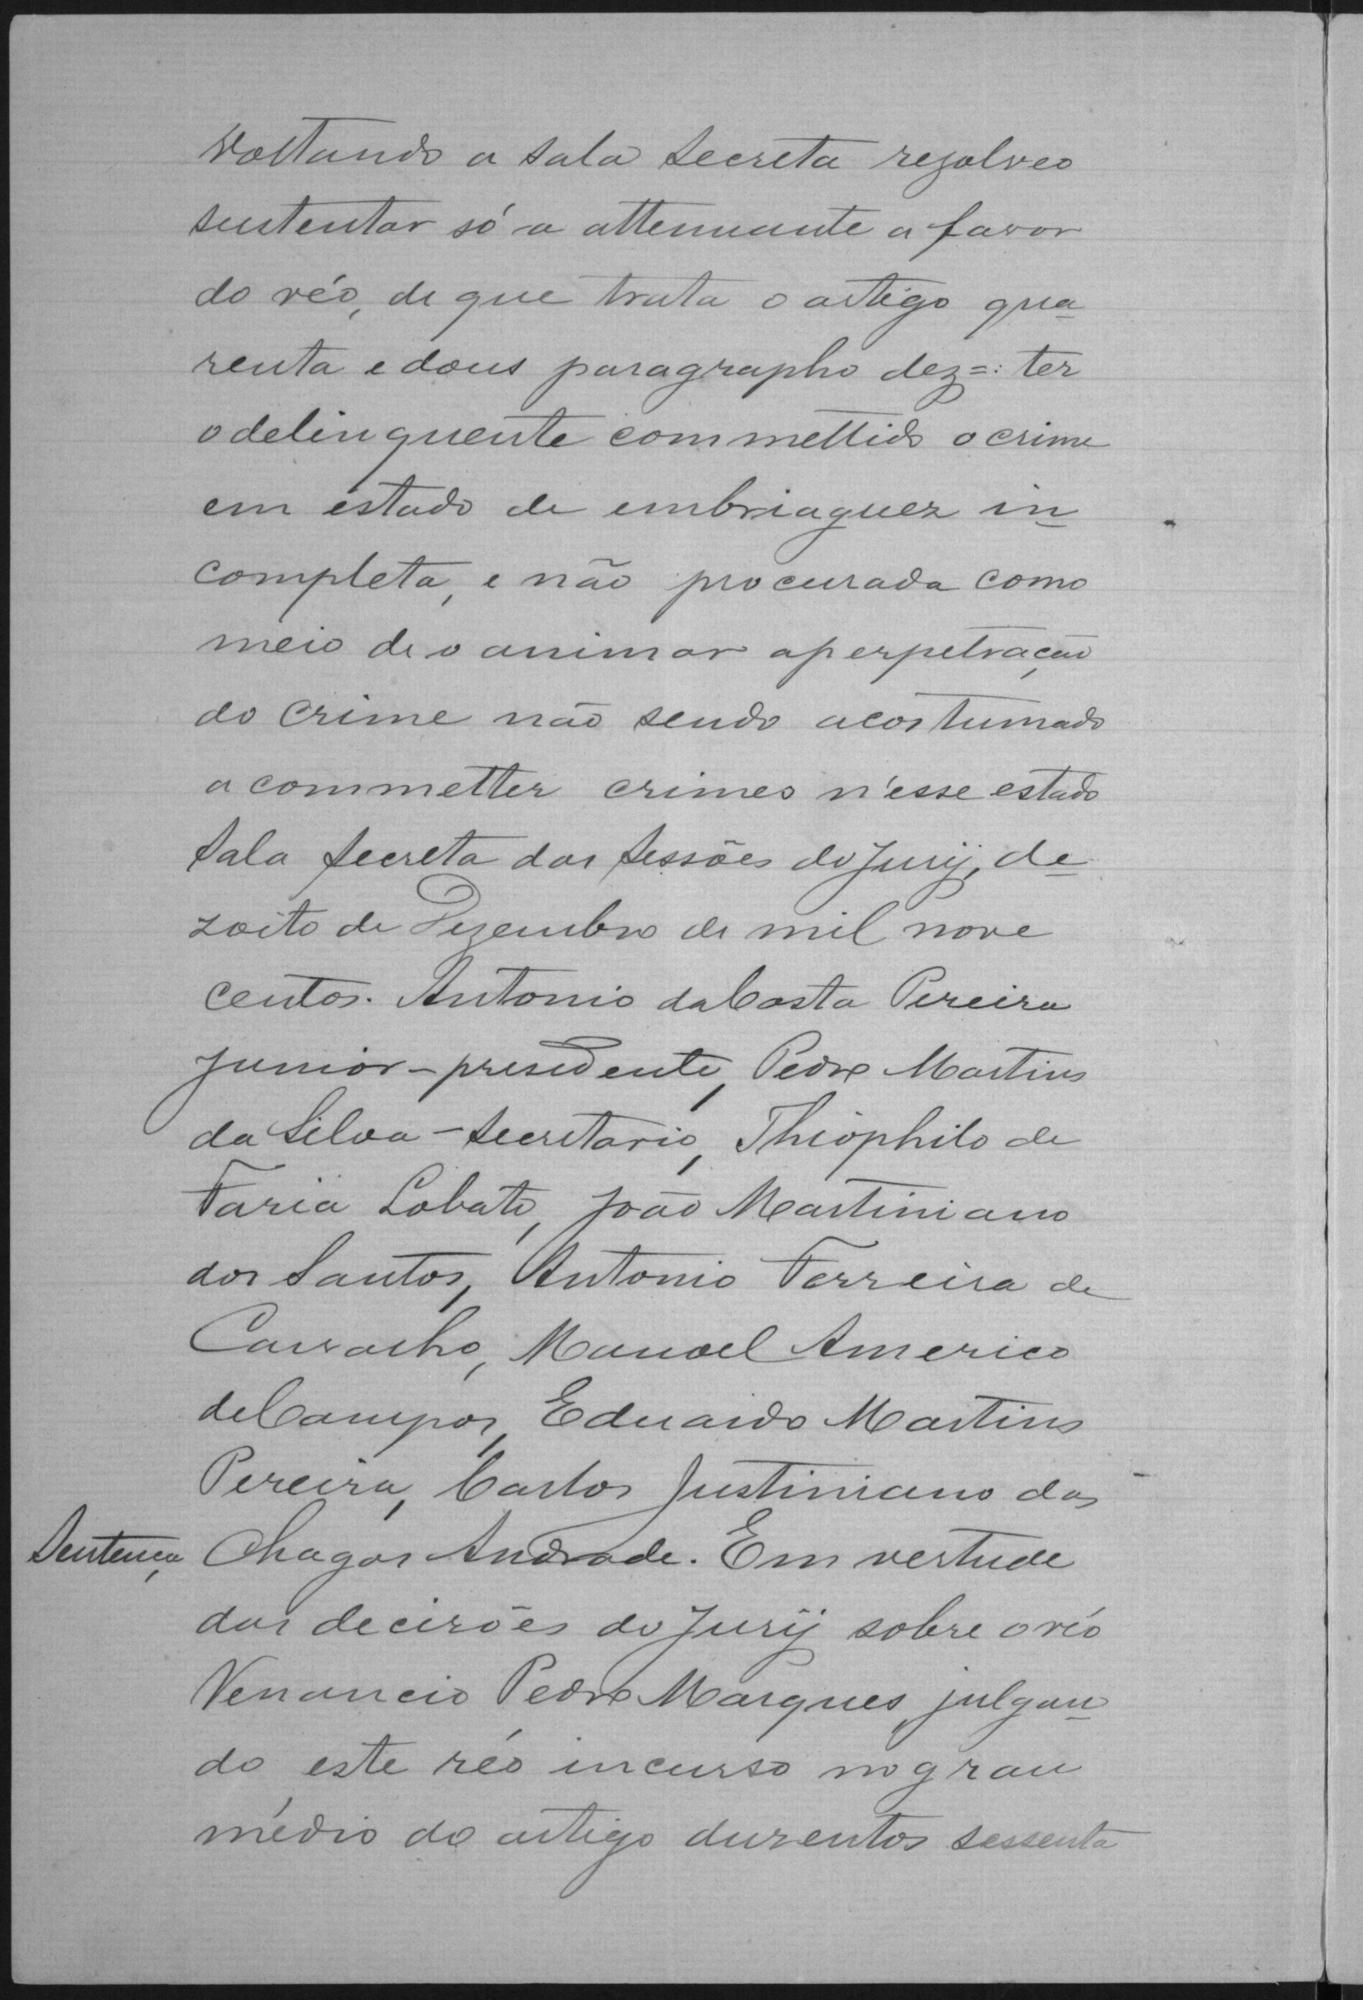 Voltando a sala secreta rezolveo
sustentar só a attenuante a favor
do réo, de que trata o artigo qua
renta e dous paragrapho dez=: ter
o delinquente commettido o crime
em estado de embriaguez in
completa, e não procurada como
meio de o animar a perpetração
do crime não sendo acostumado
a commetter crimes n'esse estado
Sala secreta das sessões do Jury, de
zoito de Dezembro de mil nove
centos. Antonio da Costa Pereira
Junior - presidente, Pedro Martins
da Silva - secretario, Theophilo de
Faria Lobato, João Martiniano
dos Santos, Antonio Ferreira de
Carvalho, Manoel Americo
de Campos, Eduardo Martins
Pereira, Carlos Justiniano das
Sentença, Chagas Andrade. Em vertude
das decisões do Jury sobre o réo
Venancio Pedro Marques, julgan
do este réo incurso no grau
médio do artigo duzentos sessenta